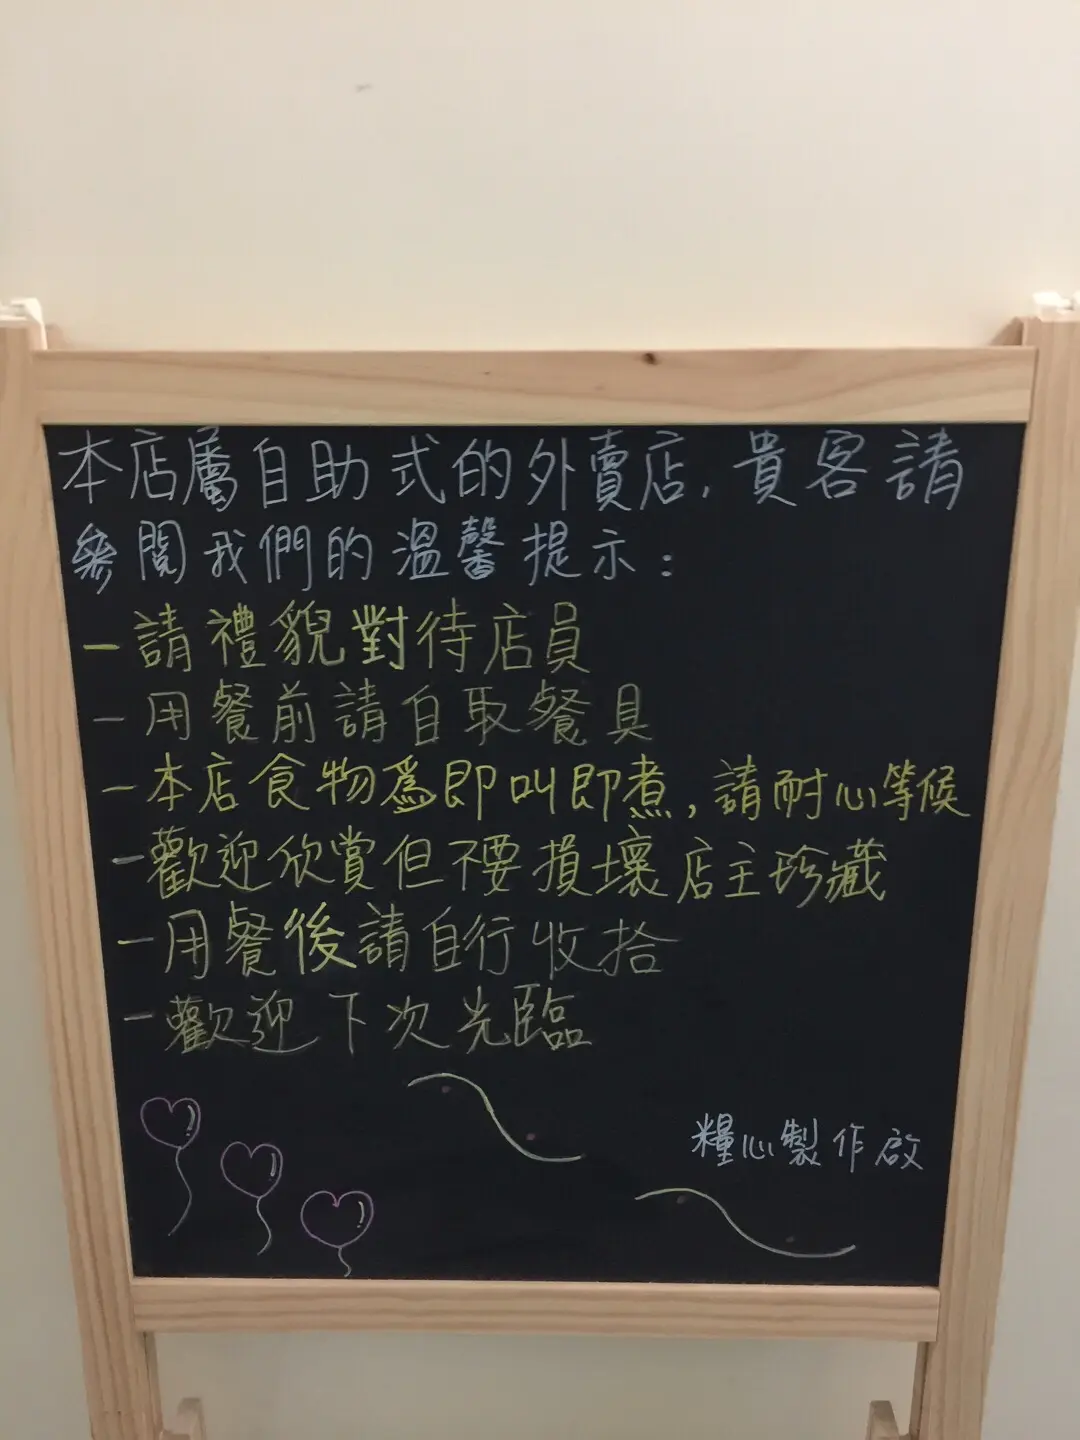 本店屬自助式的外賣店，貴客請
參閱我們的溫馨提示：
－請禮貌對待店員
－用餐前請自取餐具
－本店食物為即叫即煮，請耐心等候
－歡迎欣賞但不要損壞店主珍藏
－用餐後請自行收拾
－歡迎下次光臨
糧心製作啟